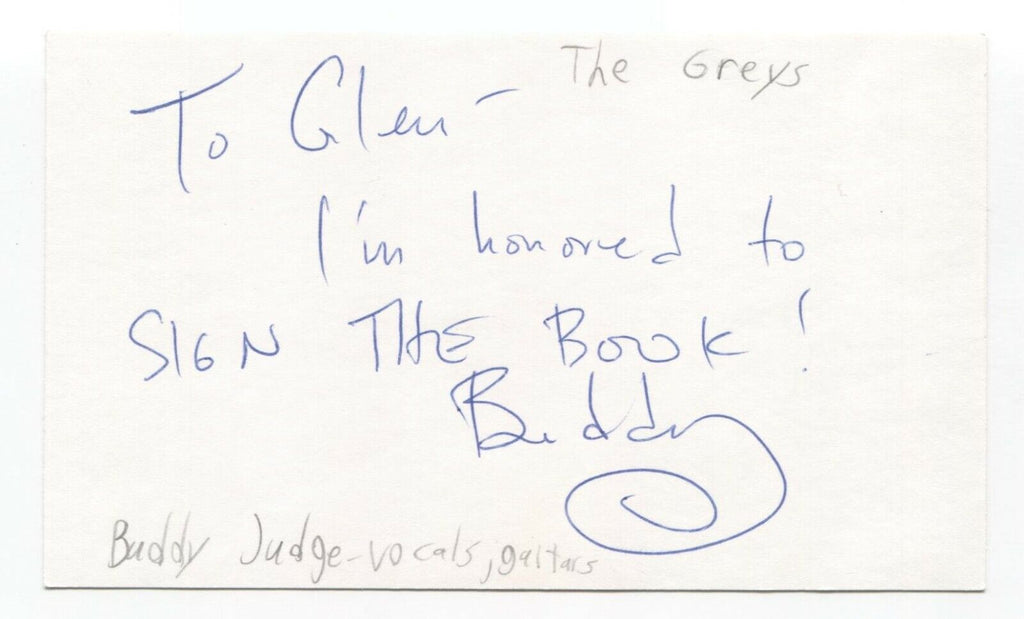 The Greys
To Glen -
I'm honored to
SIGN THE BOOK!
Buddy
Buddy Judge - vocals, guitars